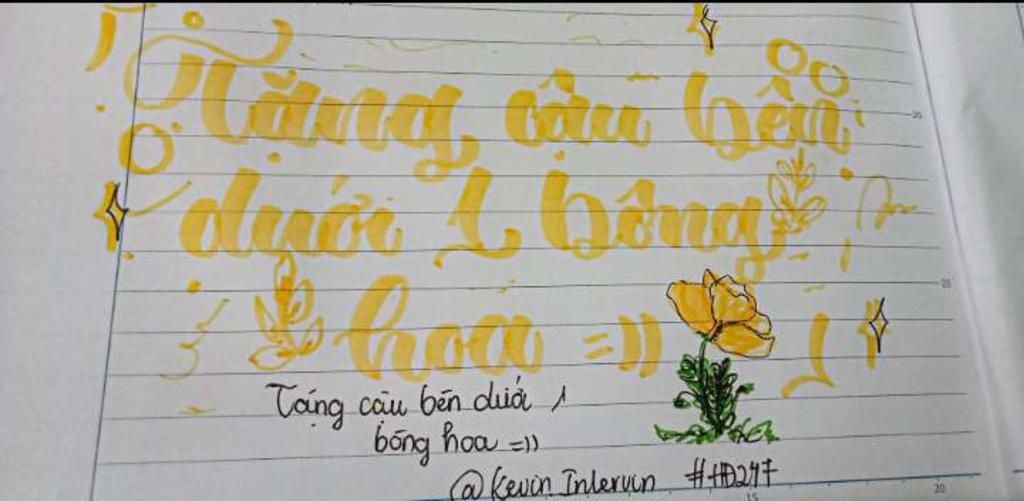 Tặng câu bên
dưới 1 bông
hoa =))
Tặng câu bên dưới 1
bông hoa =))
@Kevin Inlervin #HD247
20
25
15
20